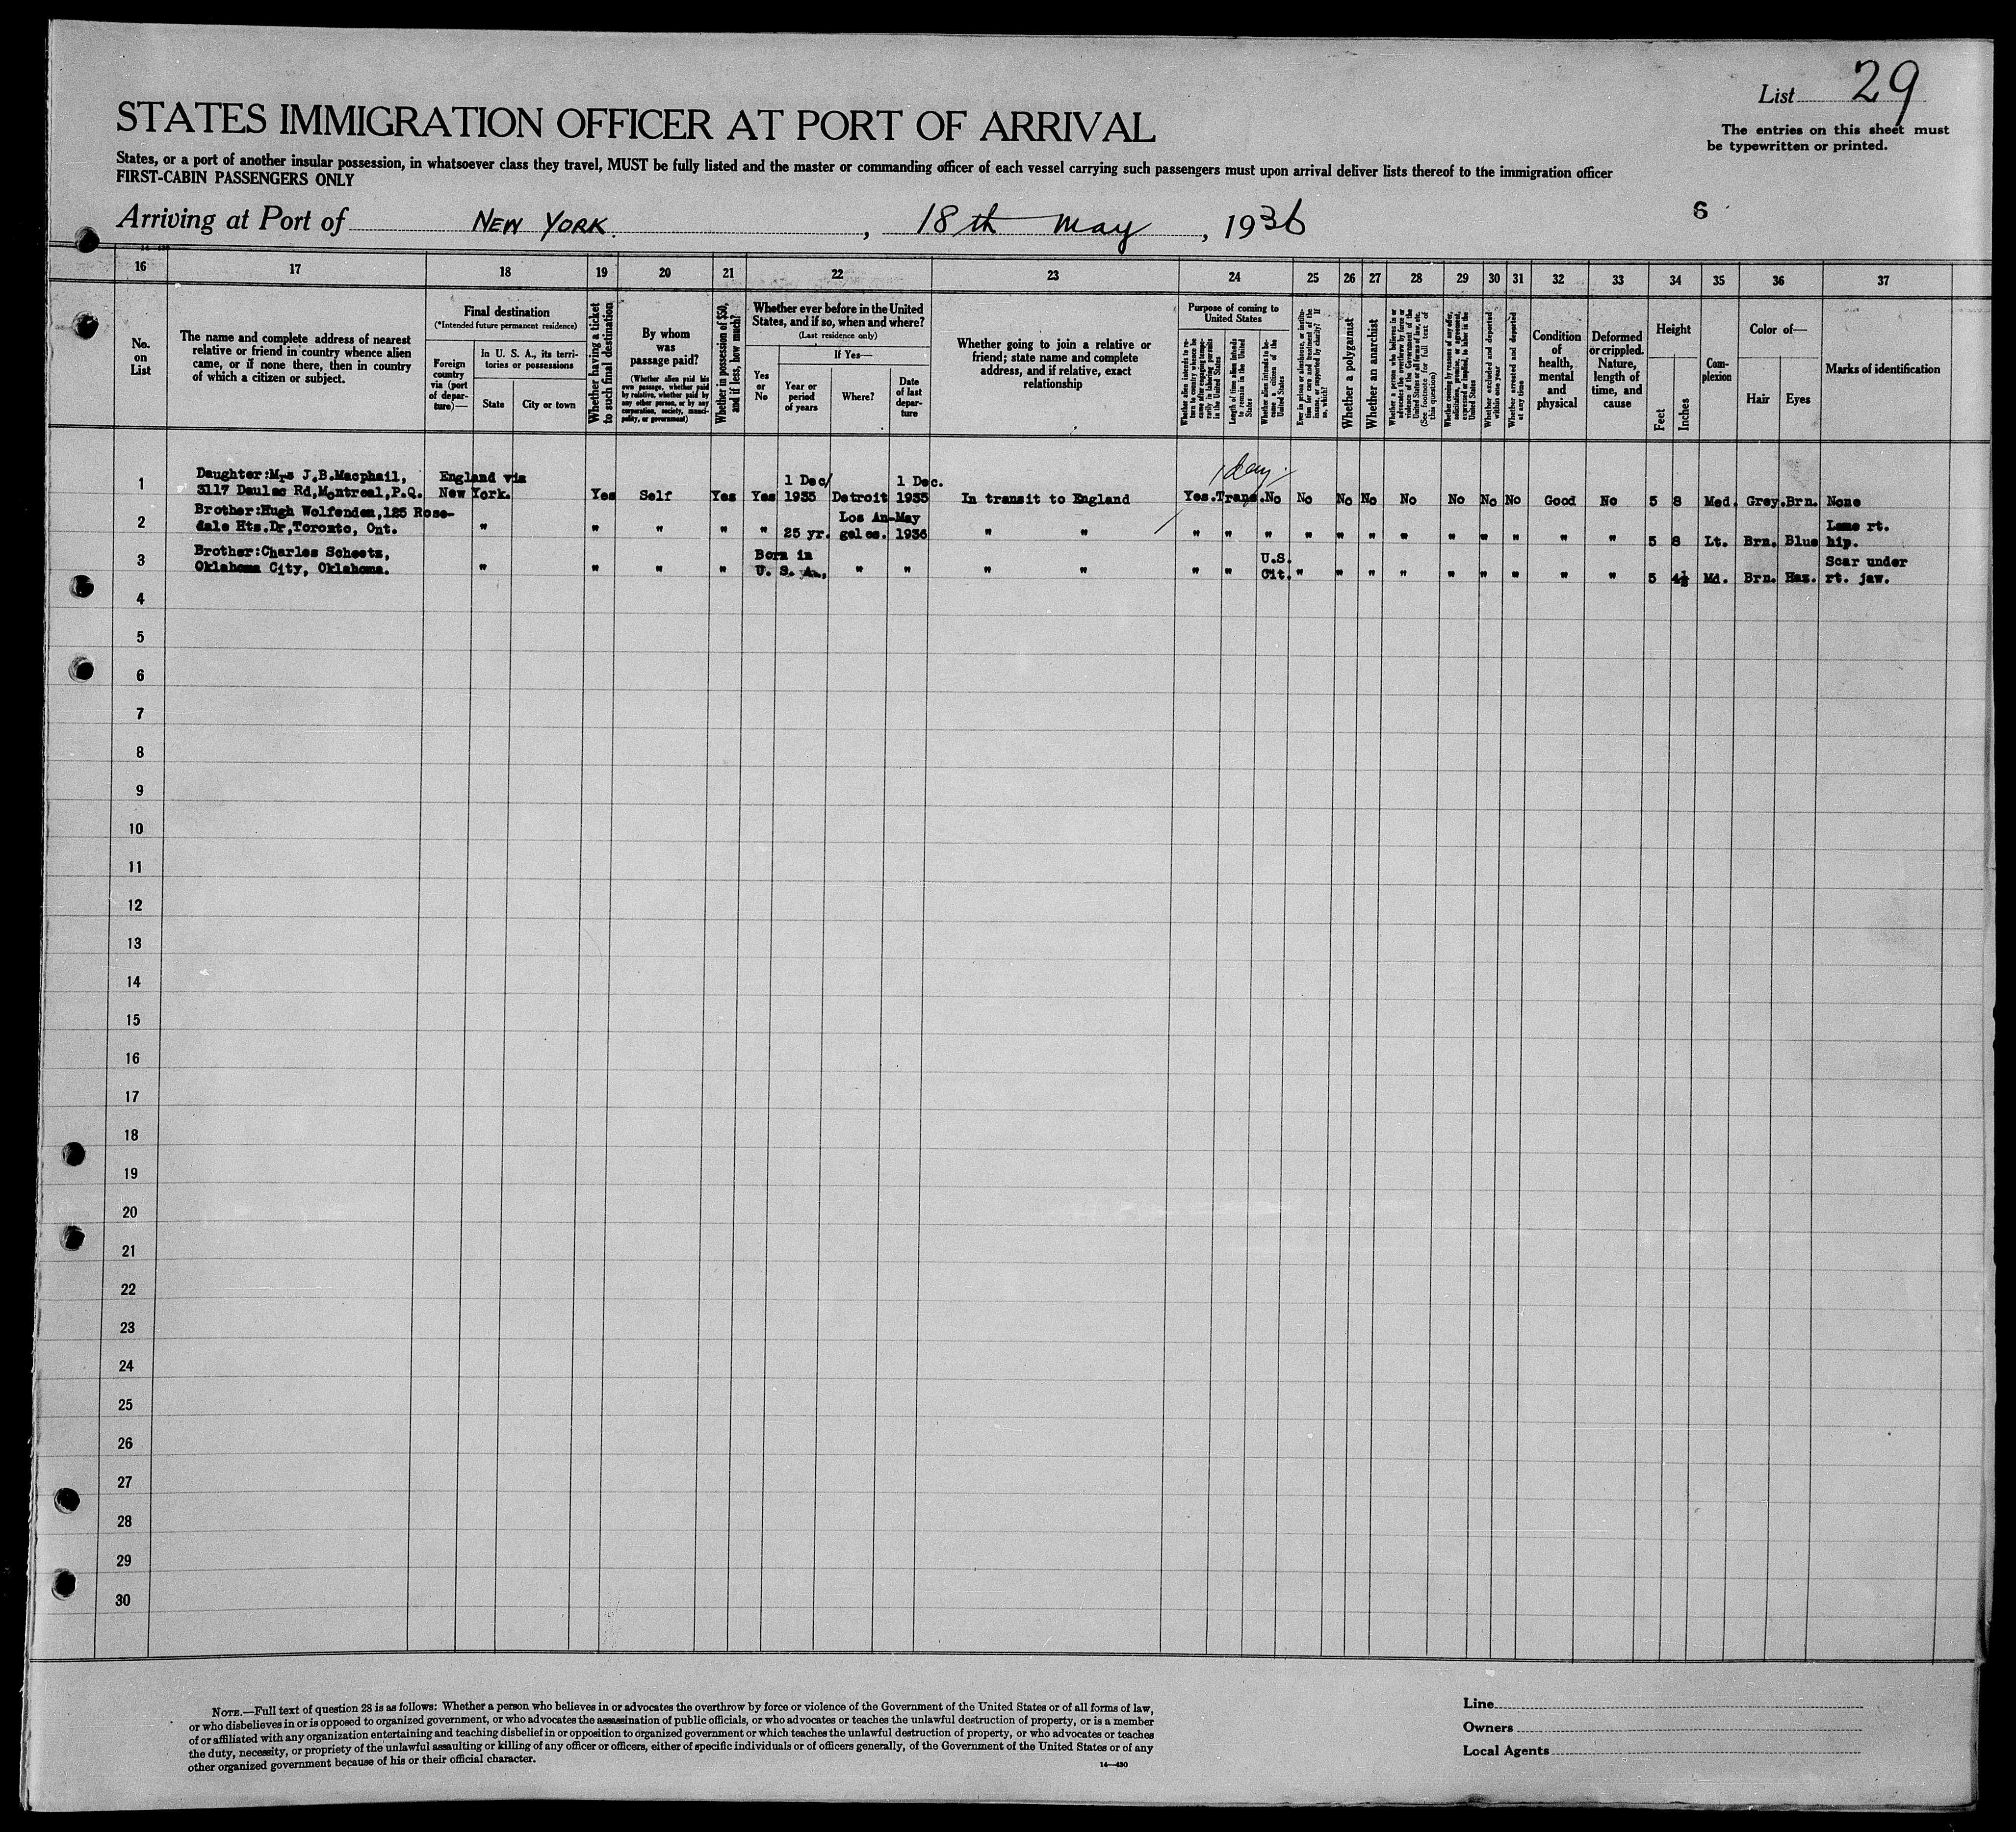 List 29
STATES IMMIGRATION OFFICER AT PORT OF ARRIVAL
The entries on this sheet must
be typewritten or printed.
States, or a port of another insular possession, in whatsoever class they travel, MUST be fully listed and the master or commanding officer of each vessel carrying such passengers must upon arrival deliver lists thereof to the immigration officer
FIRST-CABIN PASSENGERS ONLY
Arriving at Port of NEW YORK. , 18th May , 1936
6
16 17 18 19 20 21 22 23 24 25 26 27 28 29 30 31 32 33 34 35 36 37
No.
on
List
The name and complete address of nearest
relative or friend in country whence alien
came, or if none there, then in country
of which a citizen or subject.
Final destination
(*Intended future permanent residence)
Foreign
country
via (port
of depar-
ture)—
In U. S. A., its terri-
tories or possessions
State
City or town
Whether having a ticket
to such final destination
By whom
was
passage paid?
(Whether alien paid his
own passage, whether paid
by relative, whether paid by
any other person, or by any
corporation, society, munici-
pality, or government)
Whether in possession of $50,
and if less, how much?
Whether ever before in the United
States, and if so, when and where?
(Last residence only)
Yes
or
No
If Yes—
Year or
period
of years
Where?
Date
of last
depar-
ture
Whether going to join a relative or
friend; state name and complete
address, and if relative, exact
relationship
Purpose of coming to
United States
Whether alien intends to re-
turn to country whence he
came after engaging tempo-
rarily in laboring pursuits
in the United States
Length of time alien intends
to remain in the United
States
Whether alien intends to be-
come a citizen of the
United States
Ever in prison or almshouse, or institu-
tion for care and treatment of the
insane, or supported by charity? If
so, which?
Whether a polygamist
Whether an anarchist
Whether a person who believes in or
advocates the overthrow by force or
violence of the Government of the
United States or all forms of law, etc.
(See footnote for full text of
this question)
Whether coming by reasons of any offer,
solicitation, promise, or agreement,
expressed or implied, to labor in the
United States
Whether excluded and deported
within one year
Whether arrested and deported
at any time
Condition
of
health,
mental
and
physical
Deformed
or crippled.
Nature,
length of
time, and
cause
Height
Feet
Inches
Com-
plexion
Color of—
Hair
Eyes
Marks of identification
1 day.
Daughter:Mrs J.B.Macphail, England via 1 Dec/ 1 Dec.
1 3117 Daulac Rd,Montreal,P.Q. New York. Yes Self Yes Yes 1935 Detroit 1935 In transit to England Yes. Trans. No No No No No No No No Good No 5 8 Med. Grey. Brn. None
Brother:Hugh Wolfenden,125 Rose- Los An- May Lame rt.
2 dale Hts.Dr,Toronto, Ont. " " " " " 25 yr. geles. 1936 " " " " " " " " " " " " " " 5 8 Lt. Brn. Blue hip.
Brother:Charles Scheetz, Born in U.S. Scar under
3 Oklahoma City, Oklahoma. " " " " U. S. A., " " " " " " Cit. " " " " " " " " " 5 4½ Md. Brn. Haz. rt. jaw.
4
5
6
7
8
9
10
11
12
13
14
15
16
17
18
19
20
21
22
23
24
25
26
27
28
29
30
NOTE.—Full text of question 28 is as follows: Whether a person who believes in or advocates the overthrow by force or violence of the Government of the United States or of all forms of law,
or who disbelieves in or is opposed to organized government, or who advocates the assassination of public officials, or who advocates or teaches the unlawful destruction of property, or is a member
of or affiliated with any organization entertaining and teaching disbelief in or opposition to organized government or which teaches the unlawful destruction of property, or who advocates or teaches
the duty, necessity, or propriety of the unlawful assaulting or killing of any officer or officers, either of specific individuals or of officers generally, of the Government of the United States or of any
other organized government because of his or their official character.
14—430
Line
Owners
Local Agents